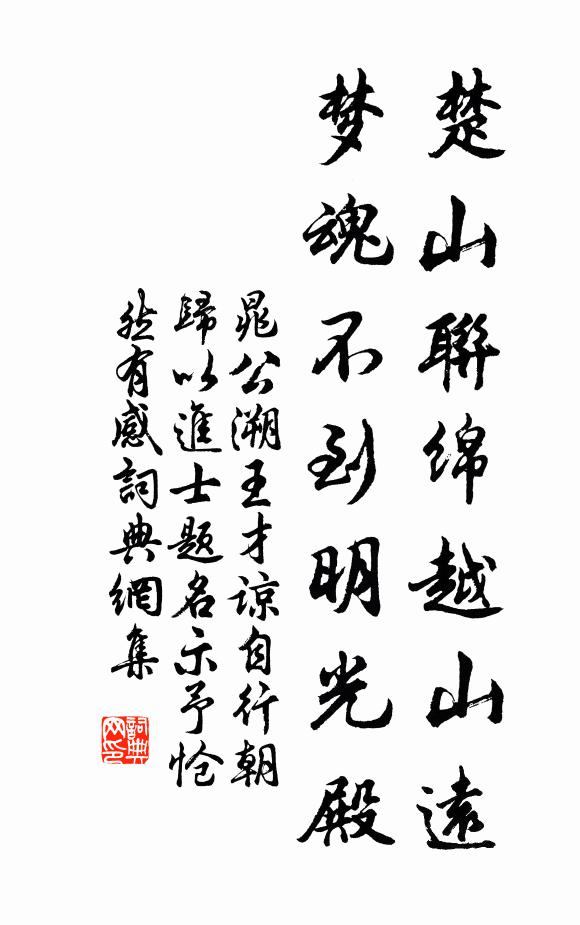 楚山聯绵越山遠
梦魂不到明光殿
晁公溯王才谅自行朝
歸以進士题名示予怆
然有感詞典網集
詞典
网印